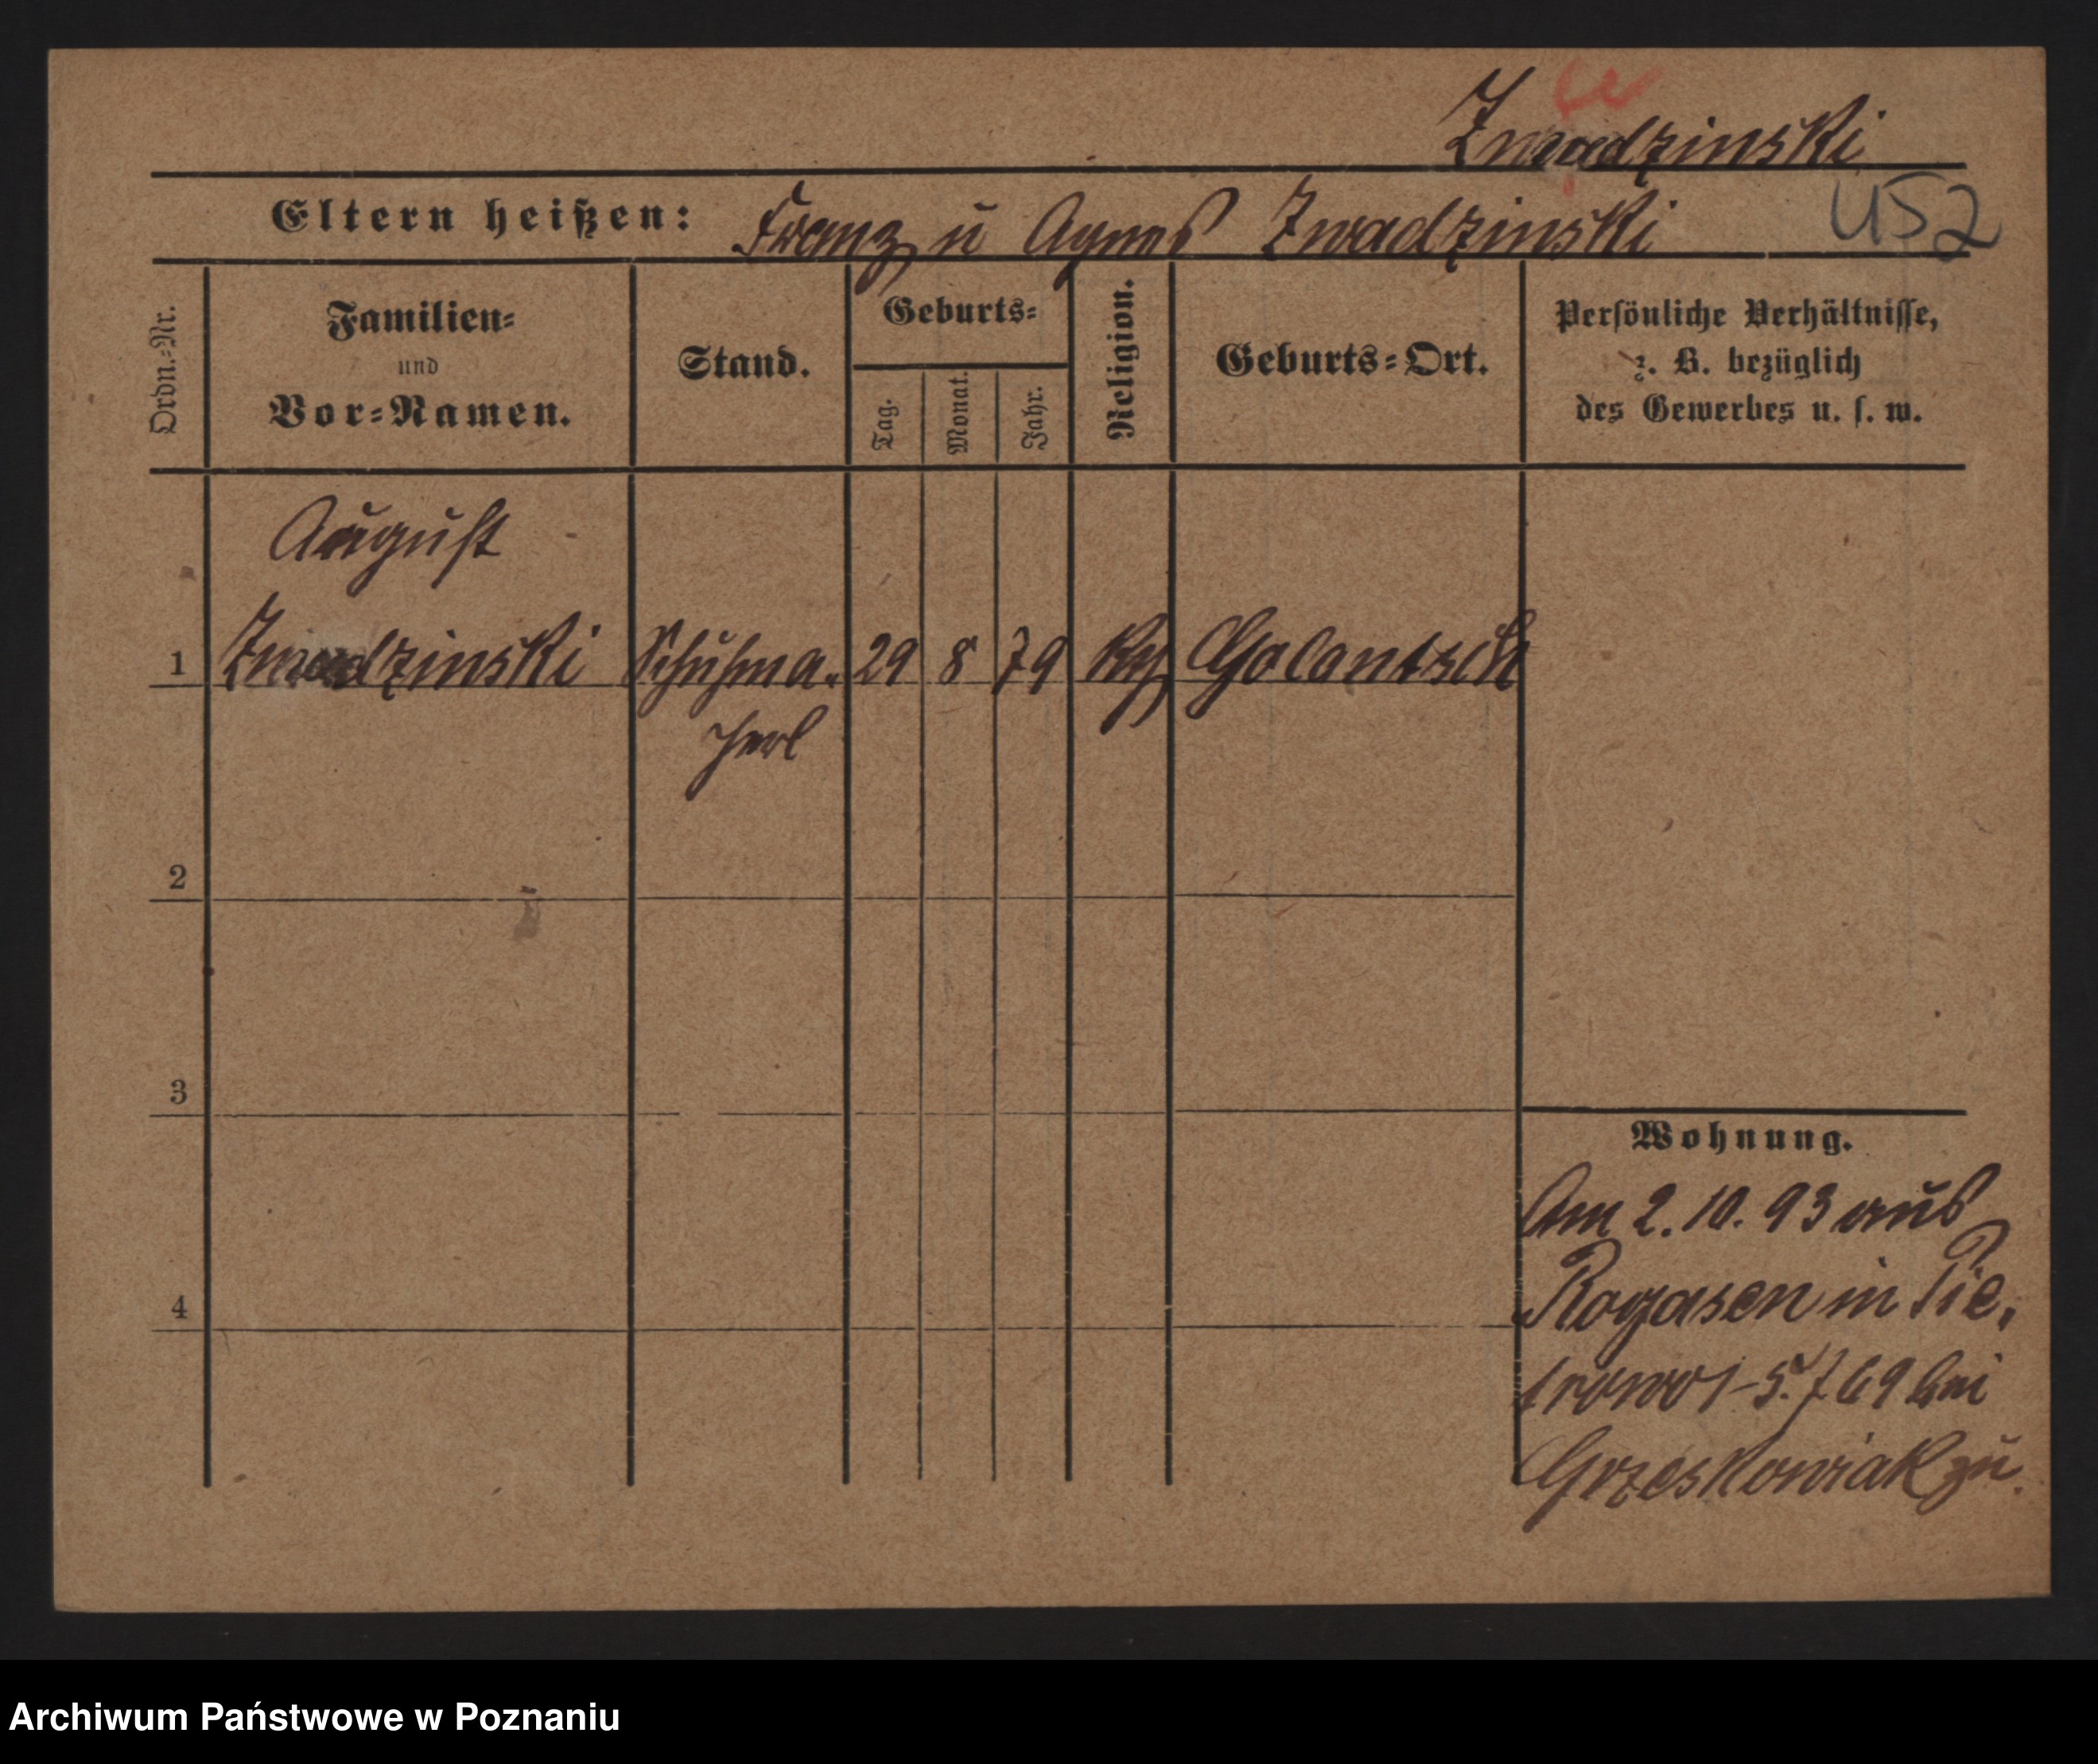 Zwadzinski
Eltern heißen: Franz u Agnes Zwadzinski
452
Ordn.-Nr.
Familien-
und
Vor-Namen.
Stand.
Geburts-
Tag.
Monat.
Jahr.
Religion.
Geburts-Ort.
Persönliche Verhältnisse,
z. B. bezüglich
des Gewerbes u. s. w.
August
1 Zwadzinski Schuhma. 29 8 79 Golantsch
2
3
4
Wohnung.
Am 2. 10. 93 aus
Rogasen in Pie,
trowo 1-5. 769 bei
Grzeskowiak zu.
Archiwum Państwowe w Poznaniu